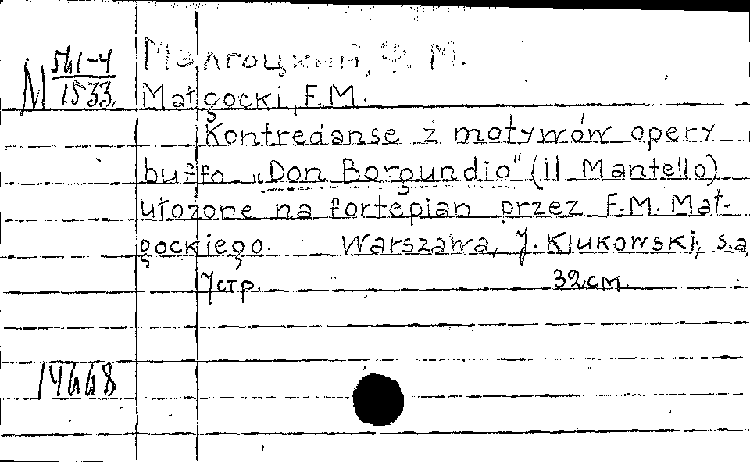 М 561-4
1533
Малгоцкий, Ф. М.
Małgocki, F.M.
Kontredanse z motywów opery
buffo „Don Borgundio" (il Mantello)
ułożone na fortepian przez F.M. Mał-
gockiego. Warszawa, J. Klukowski, s.a,
7 стр. 32 см.
14668